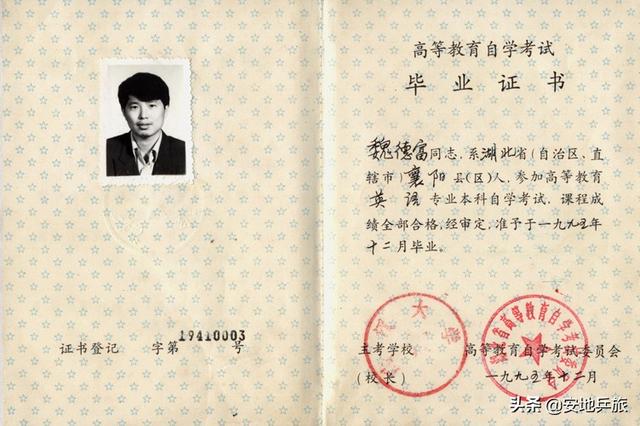 证书登记 字第19410003号
高等教育自学考试
毕业证书
魏德富同志,系湖北省(自治区、直
辖市)襄阳县(区)人,参加高等教育
英语专业本科自学考试,课程成
绩全部合格,经审定,准予于一九九五年
十二月毕业。
主考学校
(校长)
大学
高等教育自学考试委员会
省高等教育自学考试委员会
一九九五年十二月
头条 @安地乒旅